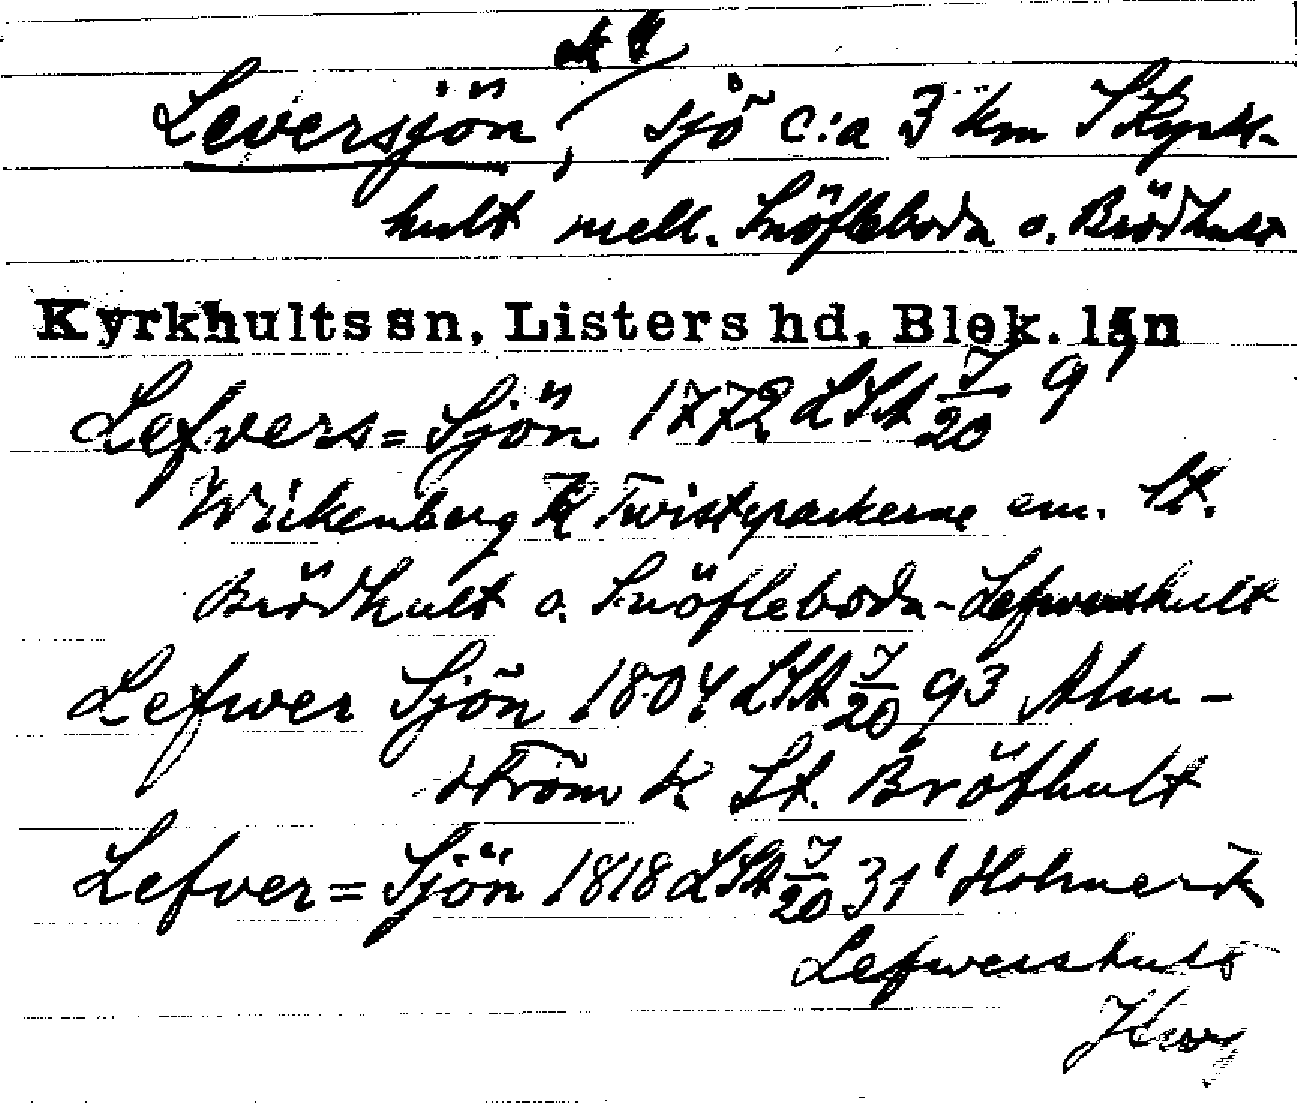 Leversjön, sjö c:a 3 km S Kyrk-
hult mell. Snöfleboda o. Brödhult
Kyrkhults sn, Listers hd, Blek. län
Lefvers=Sjön 1772 LSA 7/20 9'
Wickenberg K Twistgranskerne em. St.
Brödhult o. Snöfleboda-Lefwershult
Lefwer Sjön 1804 LSA 7/20 93 Alm-
ström K St. Bröthult
Lefver=Sjön 1818 LSA 7/20 31' Holmer K
Lefwershult